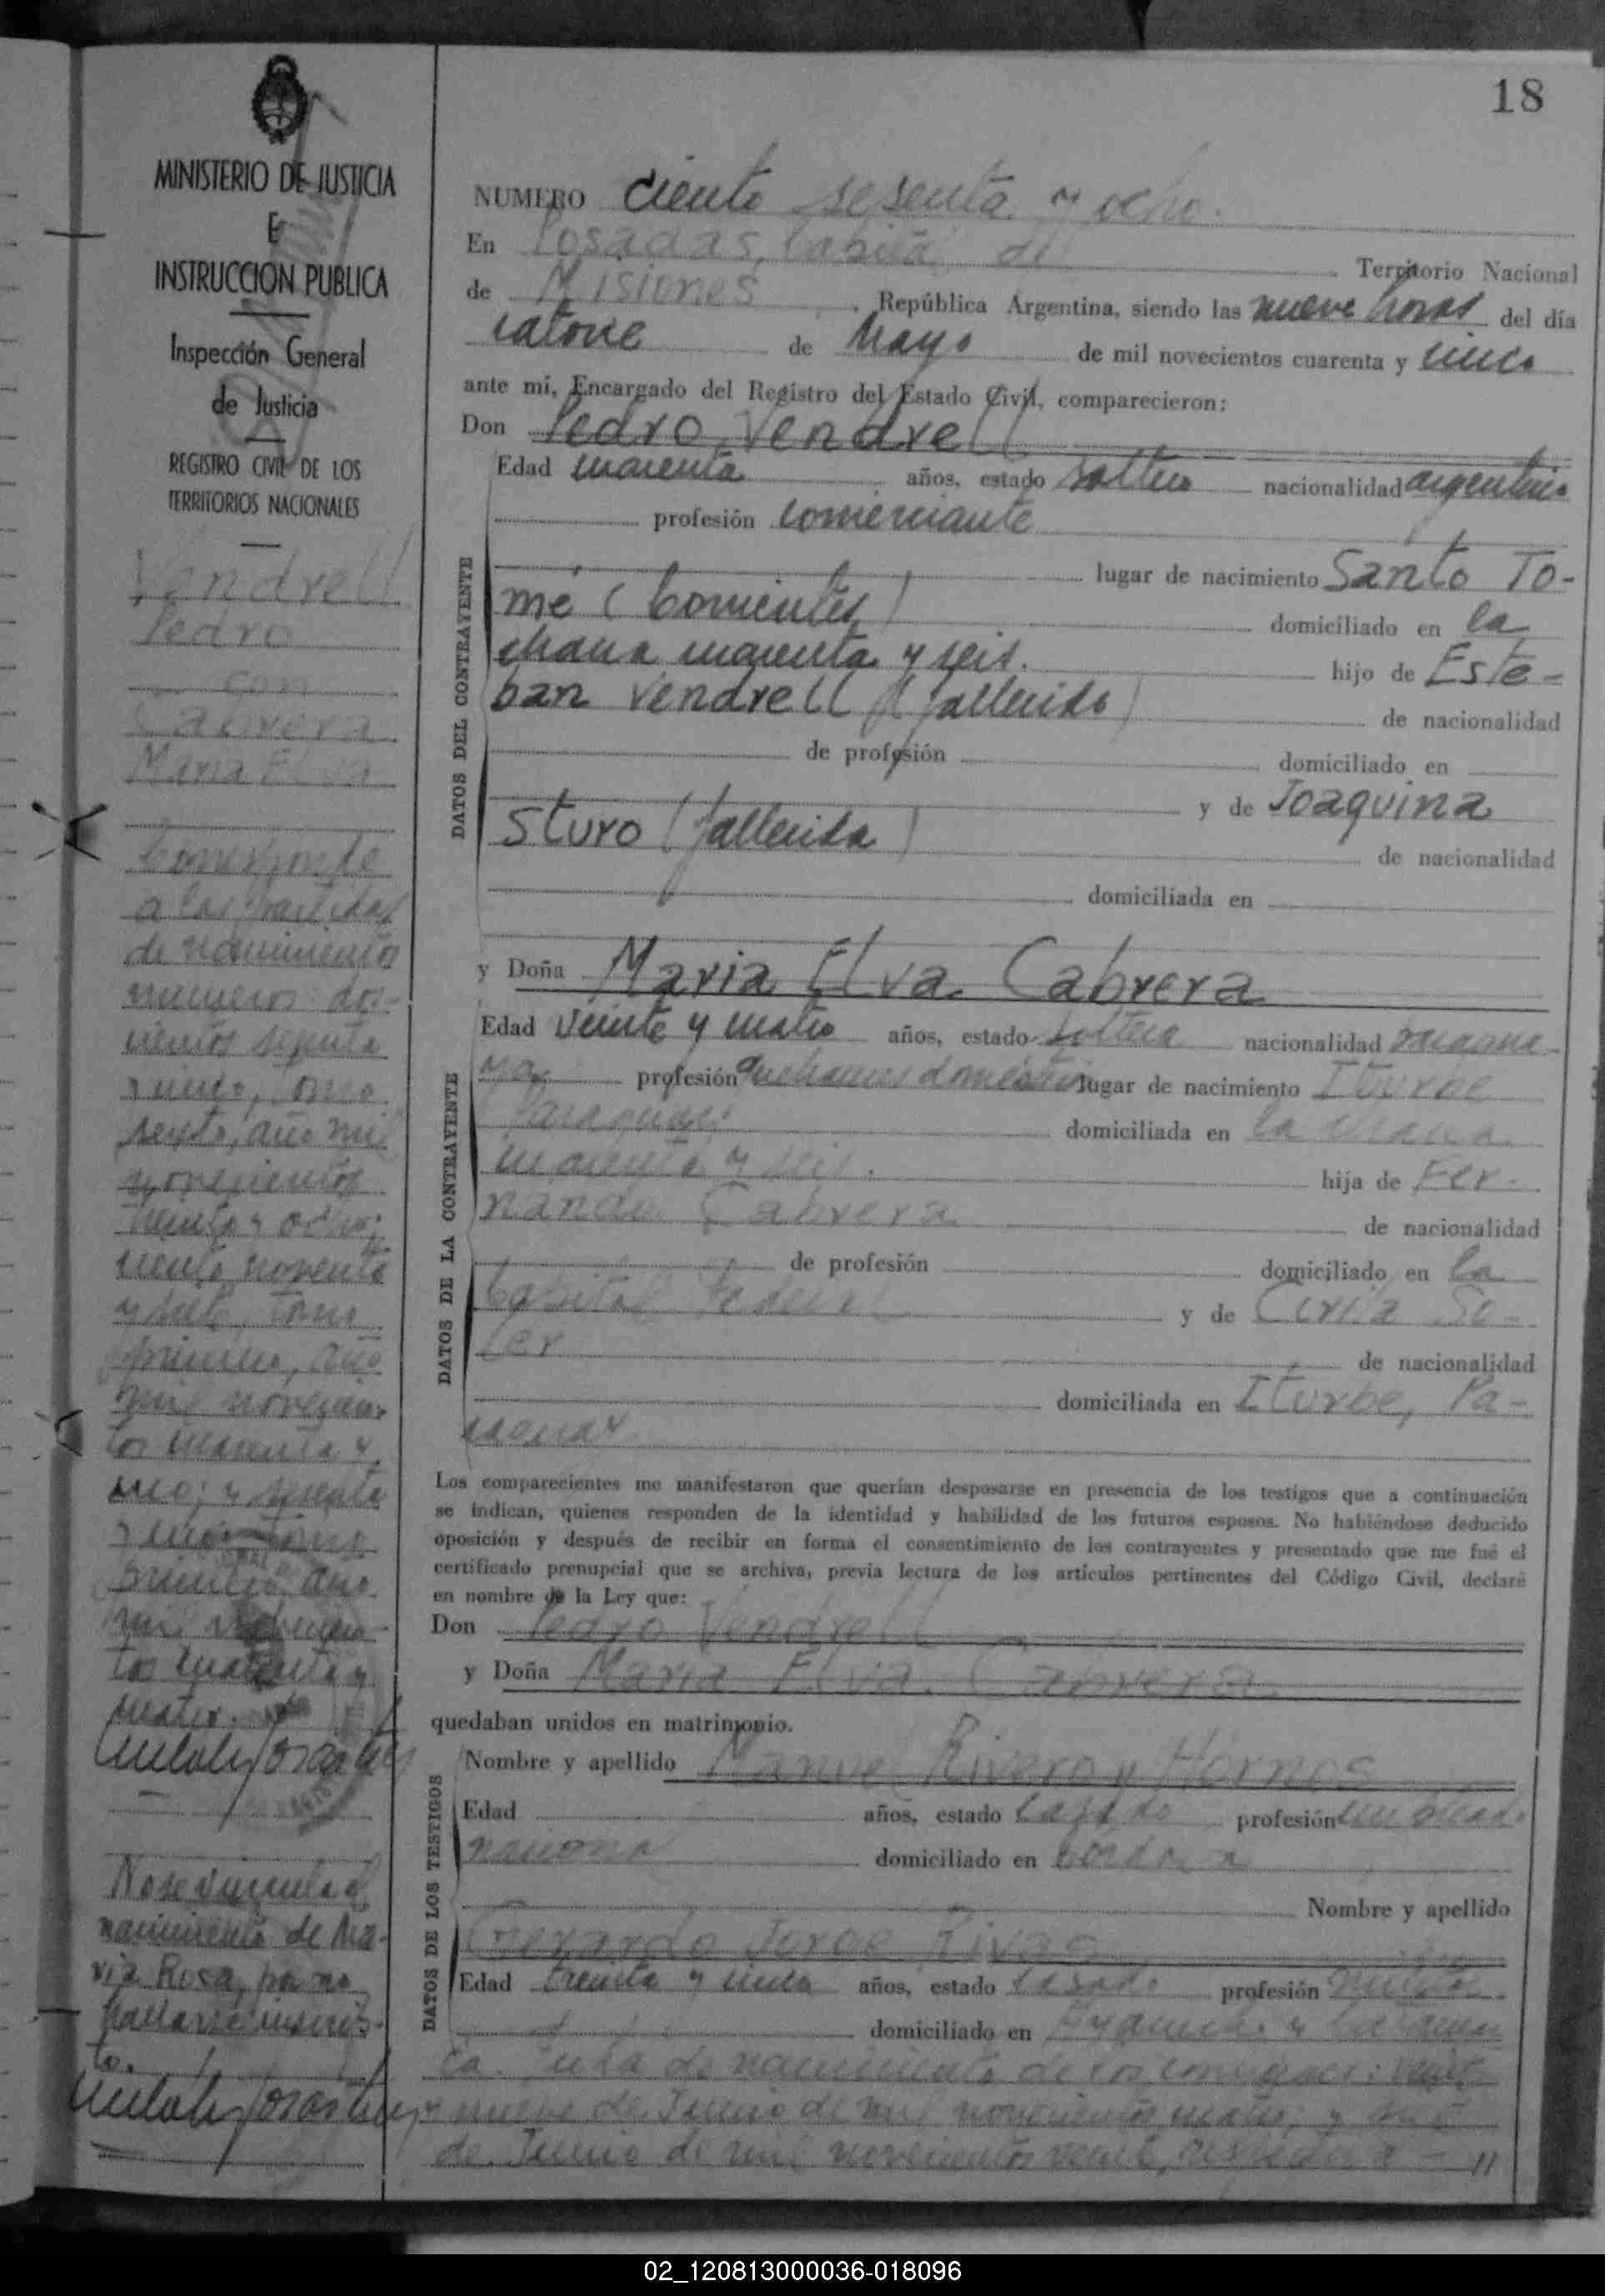 18
MINISTERIO DE JUSTICIA
E
INSTRUCCION PUBLICA
Inspección General
de Justicia
REGISTRO CIVIL DE LOS
TERRITORIOS NACIONALES
Vendrell
Pedro
con
Cabrera
Maria Elva
Corresponde
a las partidas
de nacimientos
numeros: dos-
cientos
tomo
sexto, año mil
novecientos
treinta y ocho;
ciento noventa
y siete, tomo
primero, año
mil novecien-
tos cuarenta y
uno; y sesenta
y cinco tomo
primero, año
mil novecien-
tos cuarenta y
cuatro.
No se vincula el
nacimiento de Ma-
ria Rosa, por no
hallarse inscrip-
to.
NUMERO ciento sesenta y ocho.
En Posadas, Capital de Territorio Nacional
de Misiones, República Argentina, siendo las nueve horas del día
catorce de Mayo de mil novecientos cuarenta y cinco
ante mí, Encargado del Registro del Estado Civil, comparecieron:
Don Pedro Vendrell
Edad cuarenta años, estado soltero nacionalidad argentino
profesión comerciante
DATOS DEL CONTRAYENTE
lugar de nacimiento Santo To-
mé (Corrientes) domiciliado en la
chacra cuarenta y seis. hijo de Este-
ban Vendrell (fallecido) de nacionalidad
de profesión domiciliado en
y de Joaquina
Sturo (fallecida) de nacionalidad
domiciliada en
y Doña Maria Elva Cabrera
Edad veinte y cuatro años, estado soltera nacionalidad paragua-
ya profesión quehaceres domésticos lugar de nacimiento Iturbe
DATOS DE LA CONTRAYENTE
Paraguay domiciliada en la chacra
cuarenta y seis. hija de Fer-
nando Cabrera de nacionalidad
de profesión domiciliado en la
Capital Federal y de Cirila So-
ler de nacionalidad
domiciliada en Iturbe, Pa-
raguay
Los comparecientes me manifestaron que querían desposarse en presencia de los testigos que a continuación
se indican, quienes responden de la identidad y habilidad de los futuros esposos. No habiéndose deducido
oposición y después de recibir en forma el consentimiento de los contrayentes y presentado que me fué el
certificado prenupcial que se archiva, previa lectura de los artículos pertinentes del Código Civil, declaré
en nombre de la Ley que:
Don Pedro Vendrell
y Doña Maria Elva Cabrera
quedaban unidos en matrimonio.
DATOS DE LOS TESTIGOS
Nombre y apellido Manuel Rivero y Hornos
Edad años, estado casado profesión empleado
nacional domiciliado en Cordoba
Nombre y apellido
Gerardo Jorge Rivas
Edad treinta y cinco años, estado casado profesión militar
domiciliado en Ayacucho y
de nacimiento de los
y nueve de Junio de mil novecientos cuatro; y
de Junio de mil novecientos veinte,
02_120813000036-018096